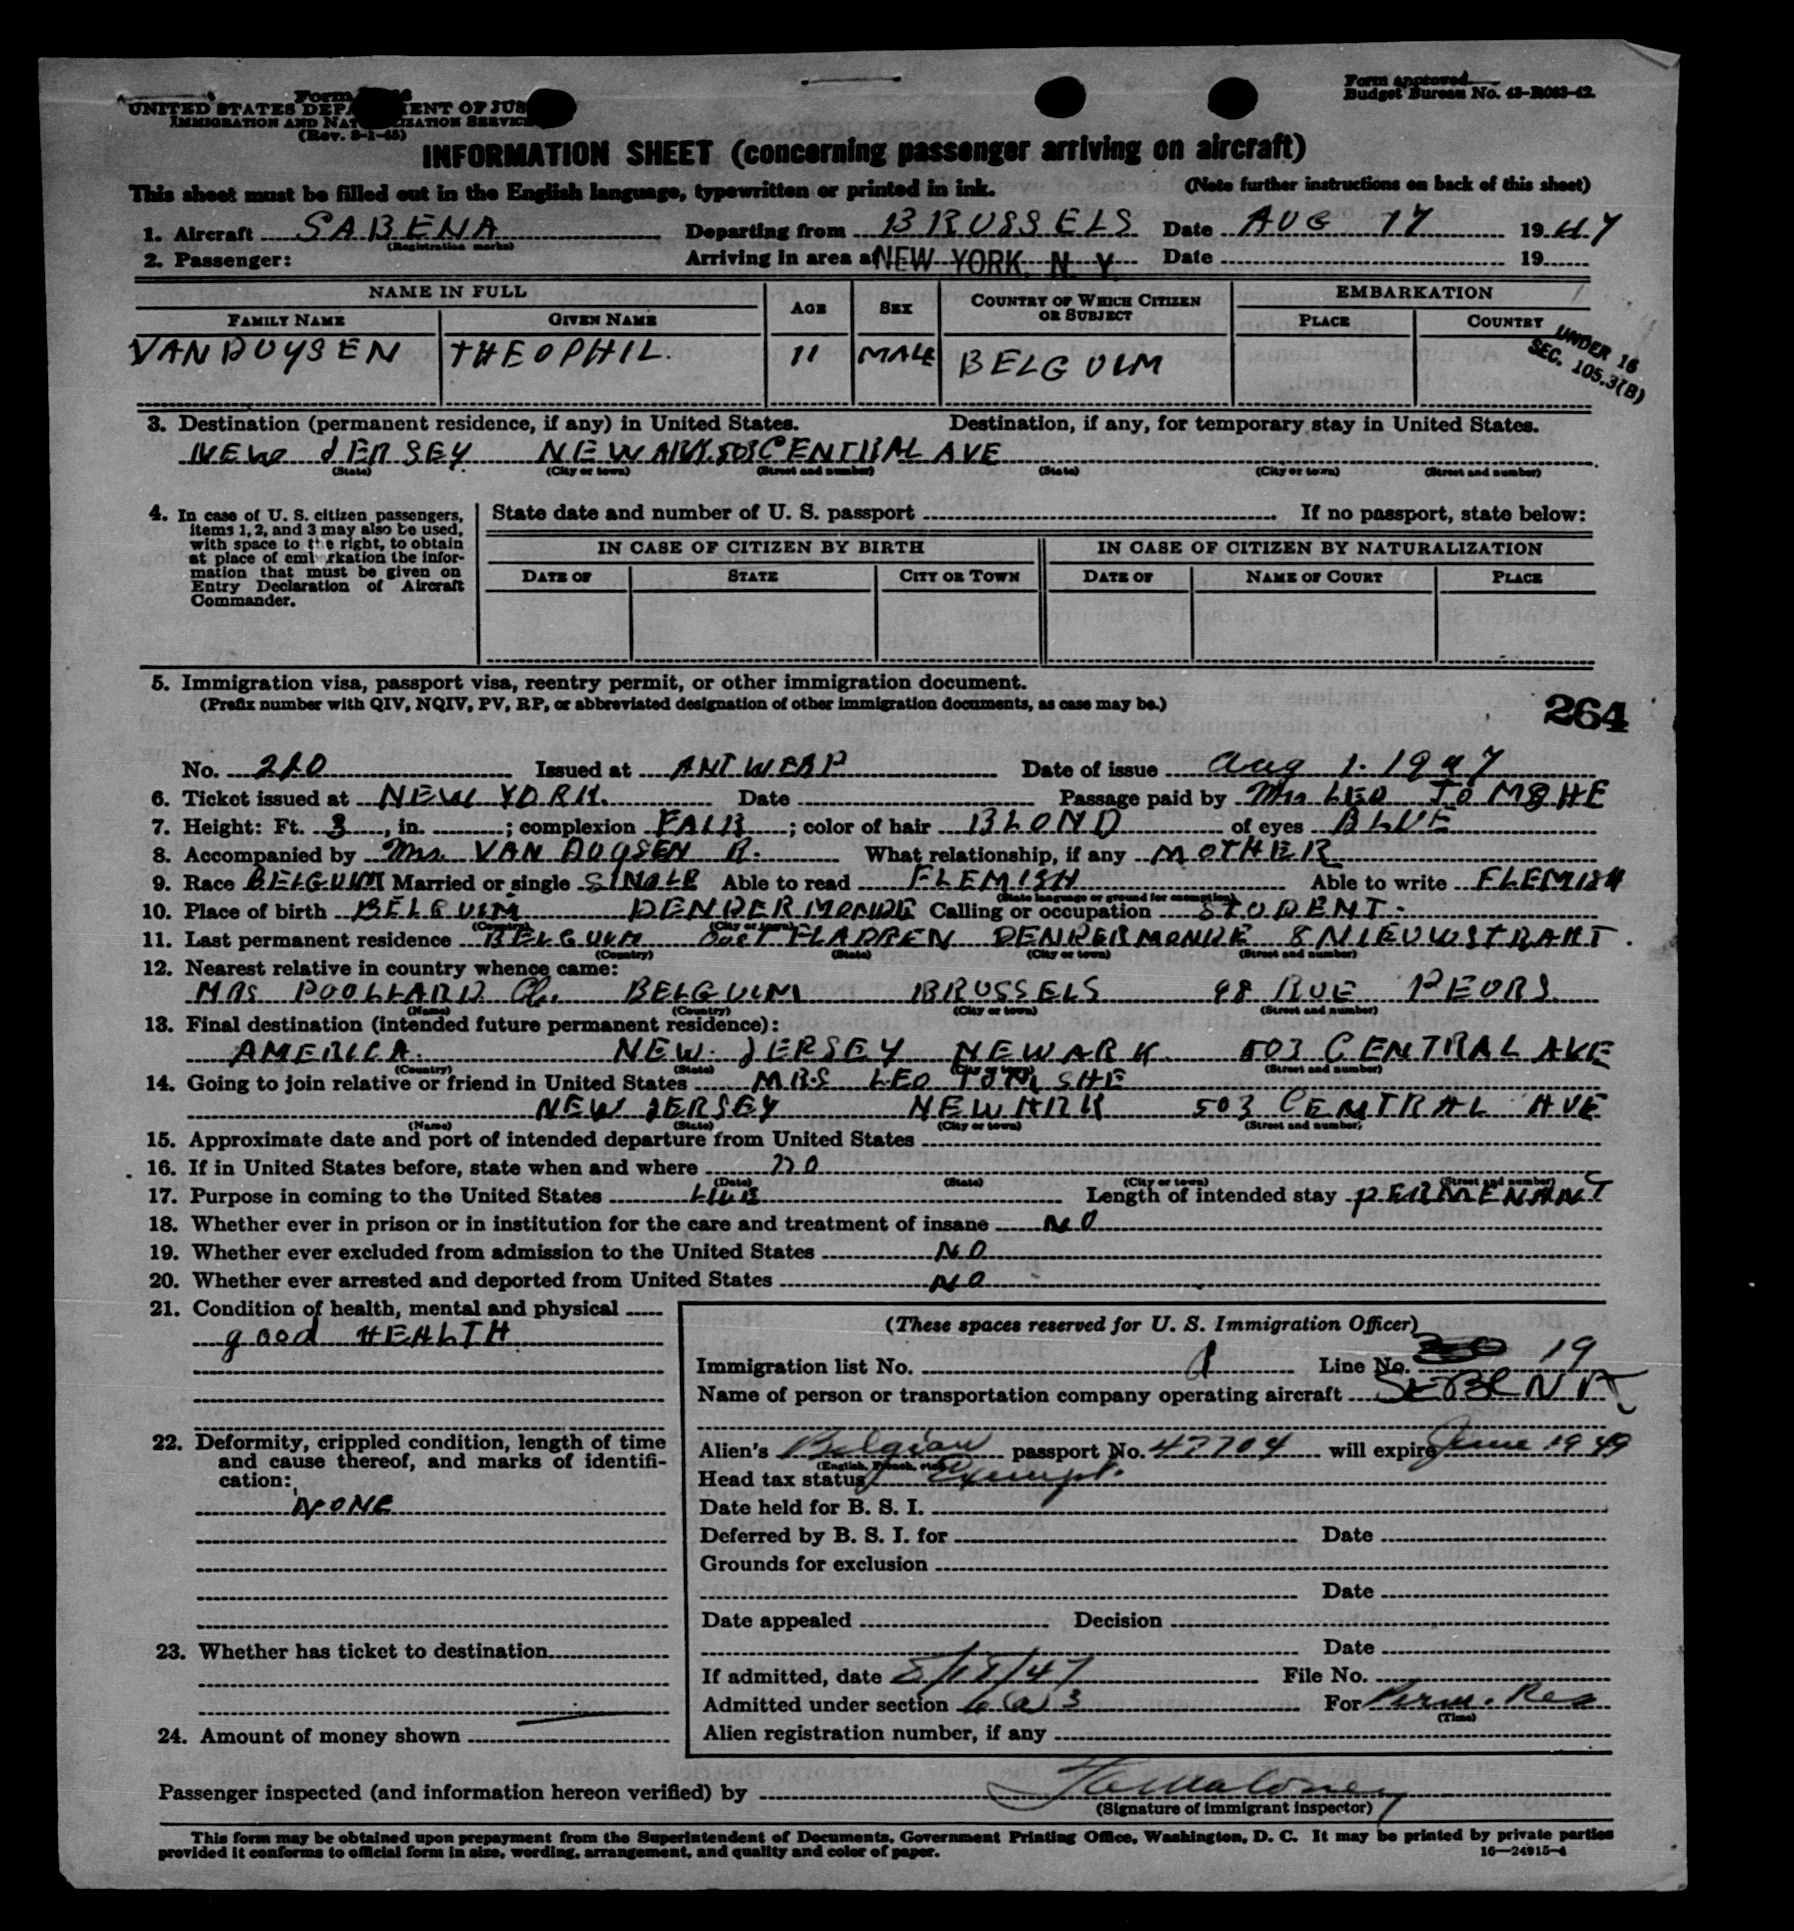 UNITED STATES DEPARTMENT OF JUSTICE
IMMIGRATION AND NATURALIZATION SERVICE
(Rev. 8-1-45)
Form approved
Budget Bureau No. 43-R083-42.
INFORMATION SHEET (concerning passenger arriving on aircraft)
This sheet must be filled out in the English language, typewritten or printed in ink. (Note further instructions on back of this sheet)
1. Aircraft SABENA Departing from BRUSSELS Date AUG 17 1947
(Registration marks)
2. Passenger: Arriving in area at NEW YORK, N. Y. Date 19
NAME IN FULL AGE SEX COUNTRY OF WHICH CITIZEN OR SUBJECT EMBARKATION
FAMILY NAME GIVEN NAME PLACE COUNTRY
VAN DUYSEN THEOPHIL. 11 MALE BELGUIM
UNDER 16
SEC. 105.3(B)
3. Destination (permanent residence, if any) in United States. Destination, if any, for temporary stay in United States.
NEW JERSEY NEWARK. 503 CENTRAL AVE
(State) (City or town) (Street and number) (State) (City or town) (Street and number)
4. In case of U. S. citizen passengers, items 1, 2, and 3 may also be used, with space to the right, to obtain at place of embarkation the information that must be given on Entry Declaration of Aircraft Commander.
State date and number of U. S. passport If no passport, state below:
IN CASE OF CITIZEN BY BIRTH IN CASE OF CITIZEN BY NATURALIZATION
DATE OF STATE CITY OR TOWN DATE OF NAME OF COURT PLACE
5. Immigration visa, passport visa, reentry permit, or other immigration document.
(Prefix number with QIV, NQIV, PV, RP, or abbreviated designation of other immigration documents, as case may be.)
264
No. 220 Issued at ANTWERP Date of issue Aug 1. 1947
6. Ticket issued at NEW YORK. Date Passage paid by Mrs LEO
7. Height: Ft. 3, in. ; complexion FAIR; color of hair BLOND of eyes BLUE
8. Accompanied by Mrs. VAN DUYSEN R. What relationship, if any MOTHER
9. Race BELGUIM Married or single SINGLE Able to read FLEMISH Able to write FLEMISH
(State language or ground for exemption)
10. Place of birth BELGUIM DENDERMONDE Calling or occupation STUDENT.
(Country) (City or town)
11. Last permanent residence BELGUIM OOST FLADREN DENDERMONDE 8 NIEUWSTRAAT.
(Country) (State) (City or town) (Street and number)
12. Nearest relative in country whence came:
MRS POOLLARD Ch. BELGUIM BRUSSELS 98 RUE PEORS
(Name) (Country) (City or town) (Street and number)
13. Final destination (intended future permanent residence):
AMERICA. NEW JERSEY NEWARK. 503 CENTRAL AVE
(Country) (State) (City or town) (Street and number)
14. Going to join relative or friend in United States MRS LEO
NEW JERSEY NEWARK 503 CENTRAL AVE
(Name) (State) (City or town) (Street and number)
15. Approximate date and port of intended departure from United States
16. If in United States before, state when and where no
(Date) (State) (City or town) (Street and number)
17. Purpose in coming to the United States LIVE Length of intended stay PERMENANT
18. Whether ever in prison or in institution for the care and treatment of insane NO
19. Whether ever excluded from admission to the United States NO
20. Whether ever arrested and deported from United States NO
21. Condition of health, mental and physical
good HEALTH
22. Deformity, crippled condition, length of time and cause thereof, and marks of identification:
NONE
23. Whether has ticket to destination
24. Amount of money shown
(These spaces reserved for U. S. Immigration Officer)
Immigration list No. 1 Line No. 19
Name of person or transportation company operating aircraft SEBENA
Alien's Belgian passport No. 47704 will expire June 1949
(English, French, etc.)
Head tax status Exempt.
Date held for B. S. I.
Deferred by B. S. I. for Date
Grounds for exclusion
Date
Date appealed Decision
Date
If admitted, date 8/18/47 File No.
Admitted under section 6(a)3 For Perm. Res
(Time)
Alien registration number, if any
Passenger inspected (and information hereon verified) by
(Signature of immigrant inspector)
This form may be obtained upon prepayment from the Superintendent of Documents, Government Printing Office, Washington, D. C. It may be printed by private parties
provided it conforms to official form in size, wording, arrangement, and quality and color of paper. 16—24915-4